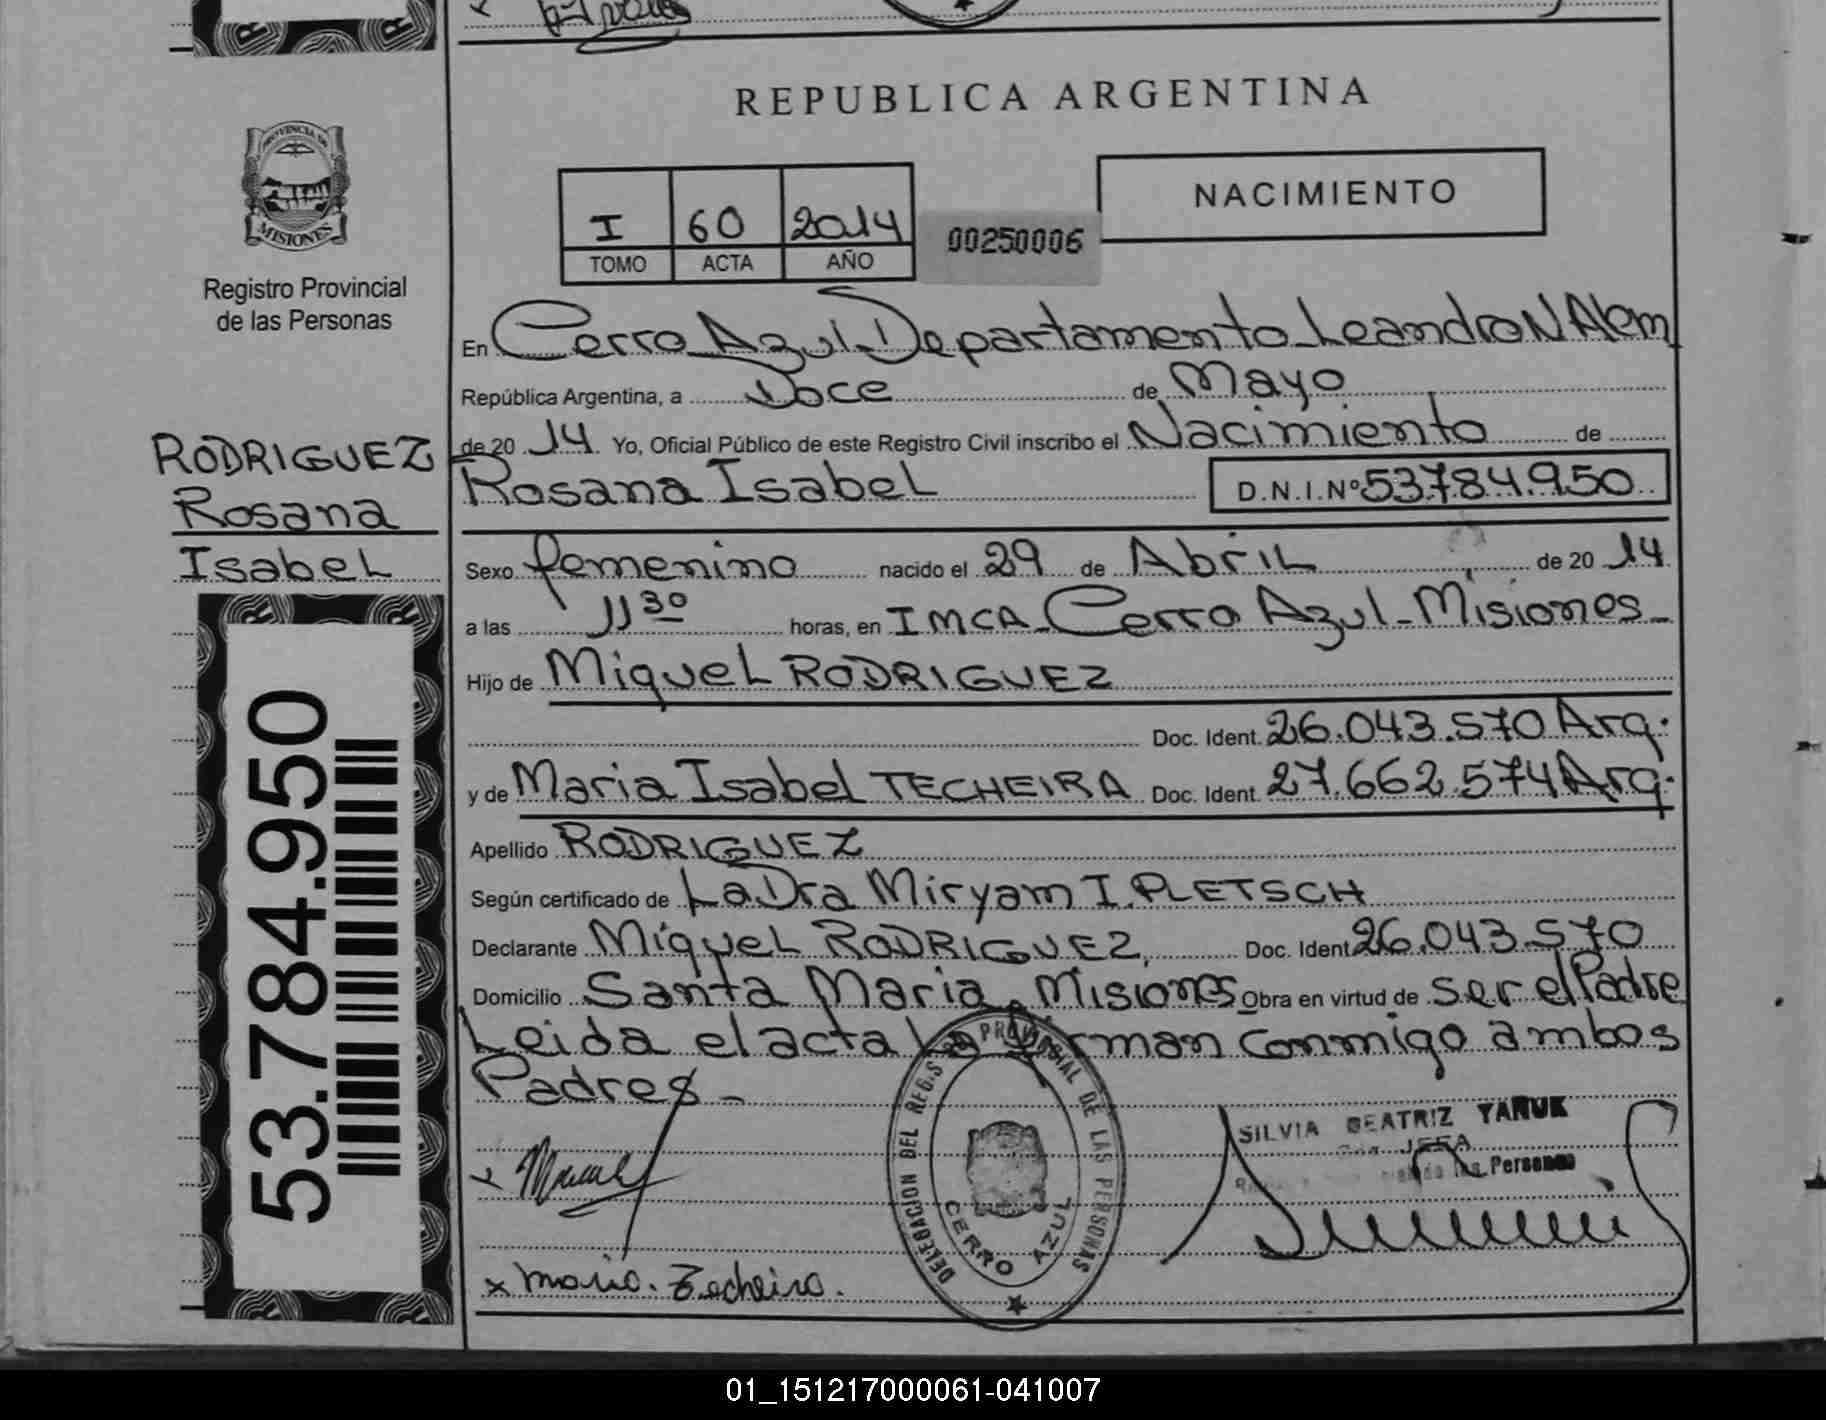 REPUBLICA ARGENTINA
PROVINCIA DE
MISIONES
Registro Provincial
de las Personas
RODRIGUEZ
Rosana
Isabel
53.784.950
I 60 2014
TOMO ACTA AÑO
00250006
NACIMIENTO
En Cerro Azul-Departamento Leandro N Alem
República Argentina, a Doce de Mayo
de 20 14 Yo, Oficial Público de este Registro Civil inscribo el Nacimiento de
Rosana Isabel D.N.I.Nº 53784.950
Sexo femenino nacido el 29 de Abril de 20 14
a las 11 30 horas, en IMCA-Cerro Azul-Misiones-
Hijo de Miguel RODRIGUEZ
Doc. Ident. 26.043.570 Arg.
y de Maria Isabel TECHEIRA Doc. Ident. 27.662.574 Arg.
Apellido RODRIGUEZ
Según certificado de La Dra Miryam I. PLETSCH
Declarante Miguel RODRIGUEZ, Doc. Ident 26.043.570
Domicilio Santa Maria, Misiones Obra en virtud de ser el Padre
Leida el acta la firman conmigo ambos
Padres-
DELEGACION DEL REG. PROVINCIAL DE LAS PERSONAS
CERRO AZUL
SILVIA BEATRIZ YARUK
JEFA
de las Personas
x Maria. Techeira.
01_151217000061-041007